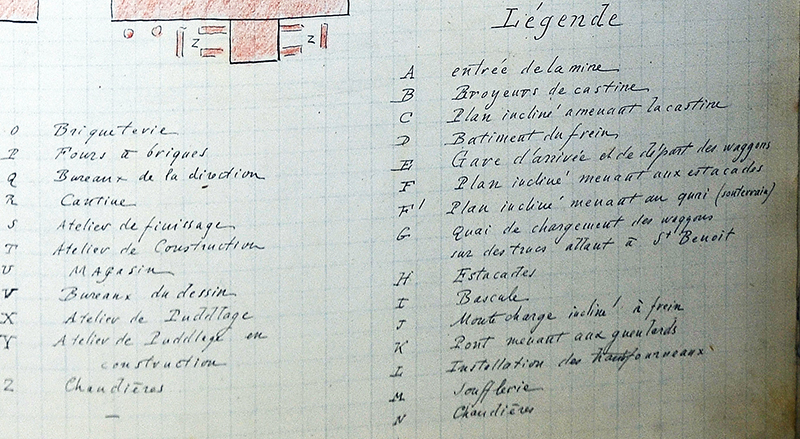 Légende
A entrée de la mine
B Broyeurs de castine
C Plan incliné amenant la castine
D Batiment du frein
E Gare d'arrivée et de départ des waggons
F Plan incliné menant aux estacades
F' Plan incliné menant au quai (souterrain)
G Quai de chargement des waggons
sur des trucs allant à St Benoit
H Estacades
I Bascule
J Monte charge incliné à frein
K Pont menant aux gueulards
L Installation des hautfourneaux
M Soufflerie
N Chaudières
O Briqueterie
P Fours à briques
Q Bureaux de la direction
R Cantine
S Atelier de finissage
T Atelier de Construction
U Magasin
V Bureaux du dessin
X Atelier de Puddlage
Y Atelier de Puddlage en
construction
Z Chaudières
Z
Z